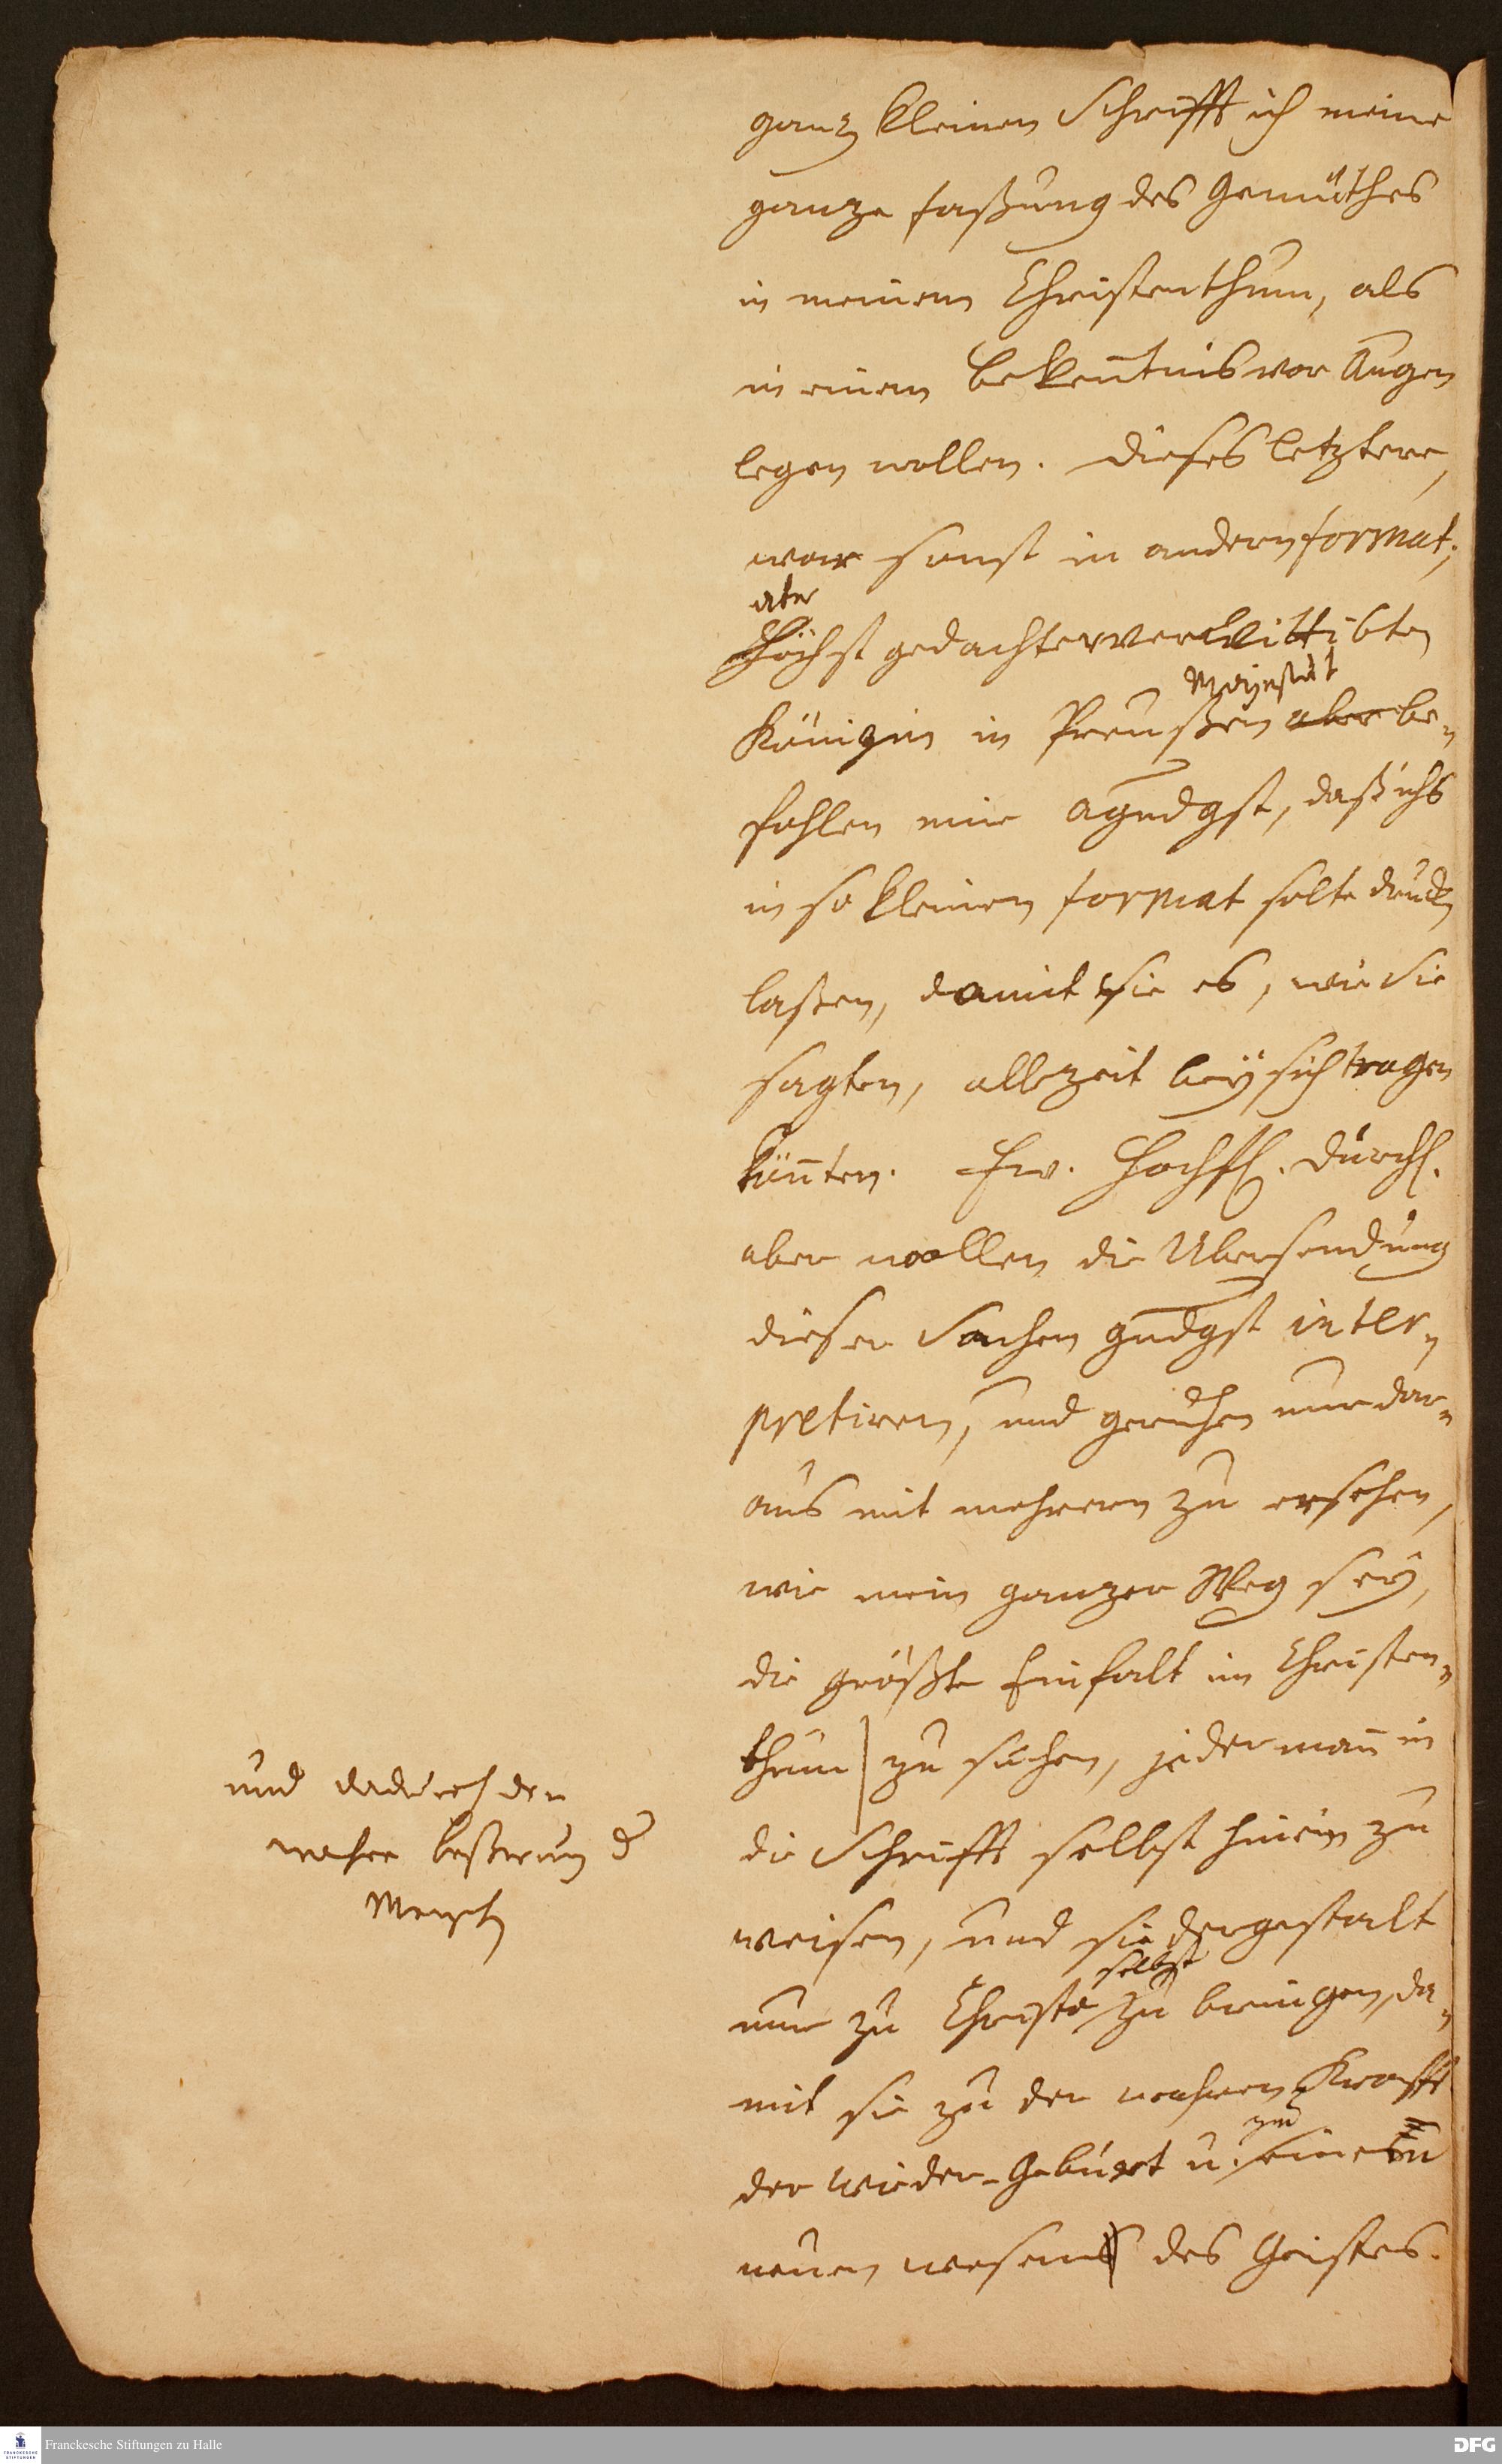 ganz kleinen Schrifft ich meine
ganze faßung des Gemüthes
in meinem Christenthum, als
in einem bekentnis vor Augen
legen wollen. Dieses letztere,
war sonst in andern format;
aber
Höchst gedachter verwittibten
Majestät
Königin in Preußen aber be-
fohlen mir agndgst, daß ichs
in so kleinen format solte drucken
laßen, damit sie es, wie Sie
sagten, allezeit bey sich tragen
könten. Ew. Hochfl. Durchl.
aber wollen die Ubersendung
dieser Sachen gndgst inter-
pretiren, und geruhen nur dar-
aus mit mehrern zu ersehen,
wie mein ganzer Weg sey,
die größte Einfalt im Christen-
thum zu suchen, jederman in
und dadurch den
wahre beßerung d
Mensch
die Schrifft selbst hinein zu
weisen, und sie dergestalt
selbst
nur zu Christo zu bringen, da-
mit sie zu der wahren Krafft
zum
der Wieder-Geburt u.
neuen wesen des Geistes.
Franckesche Stiftungen zu Halle
DFG